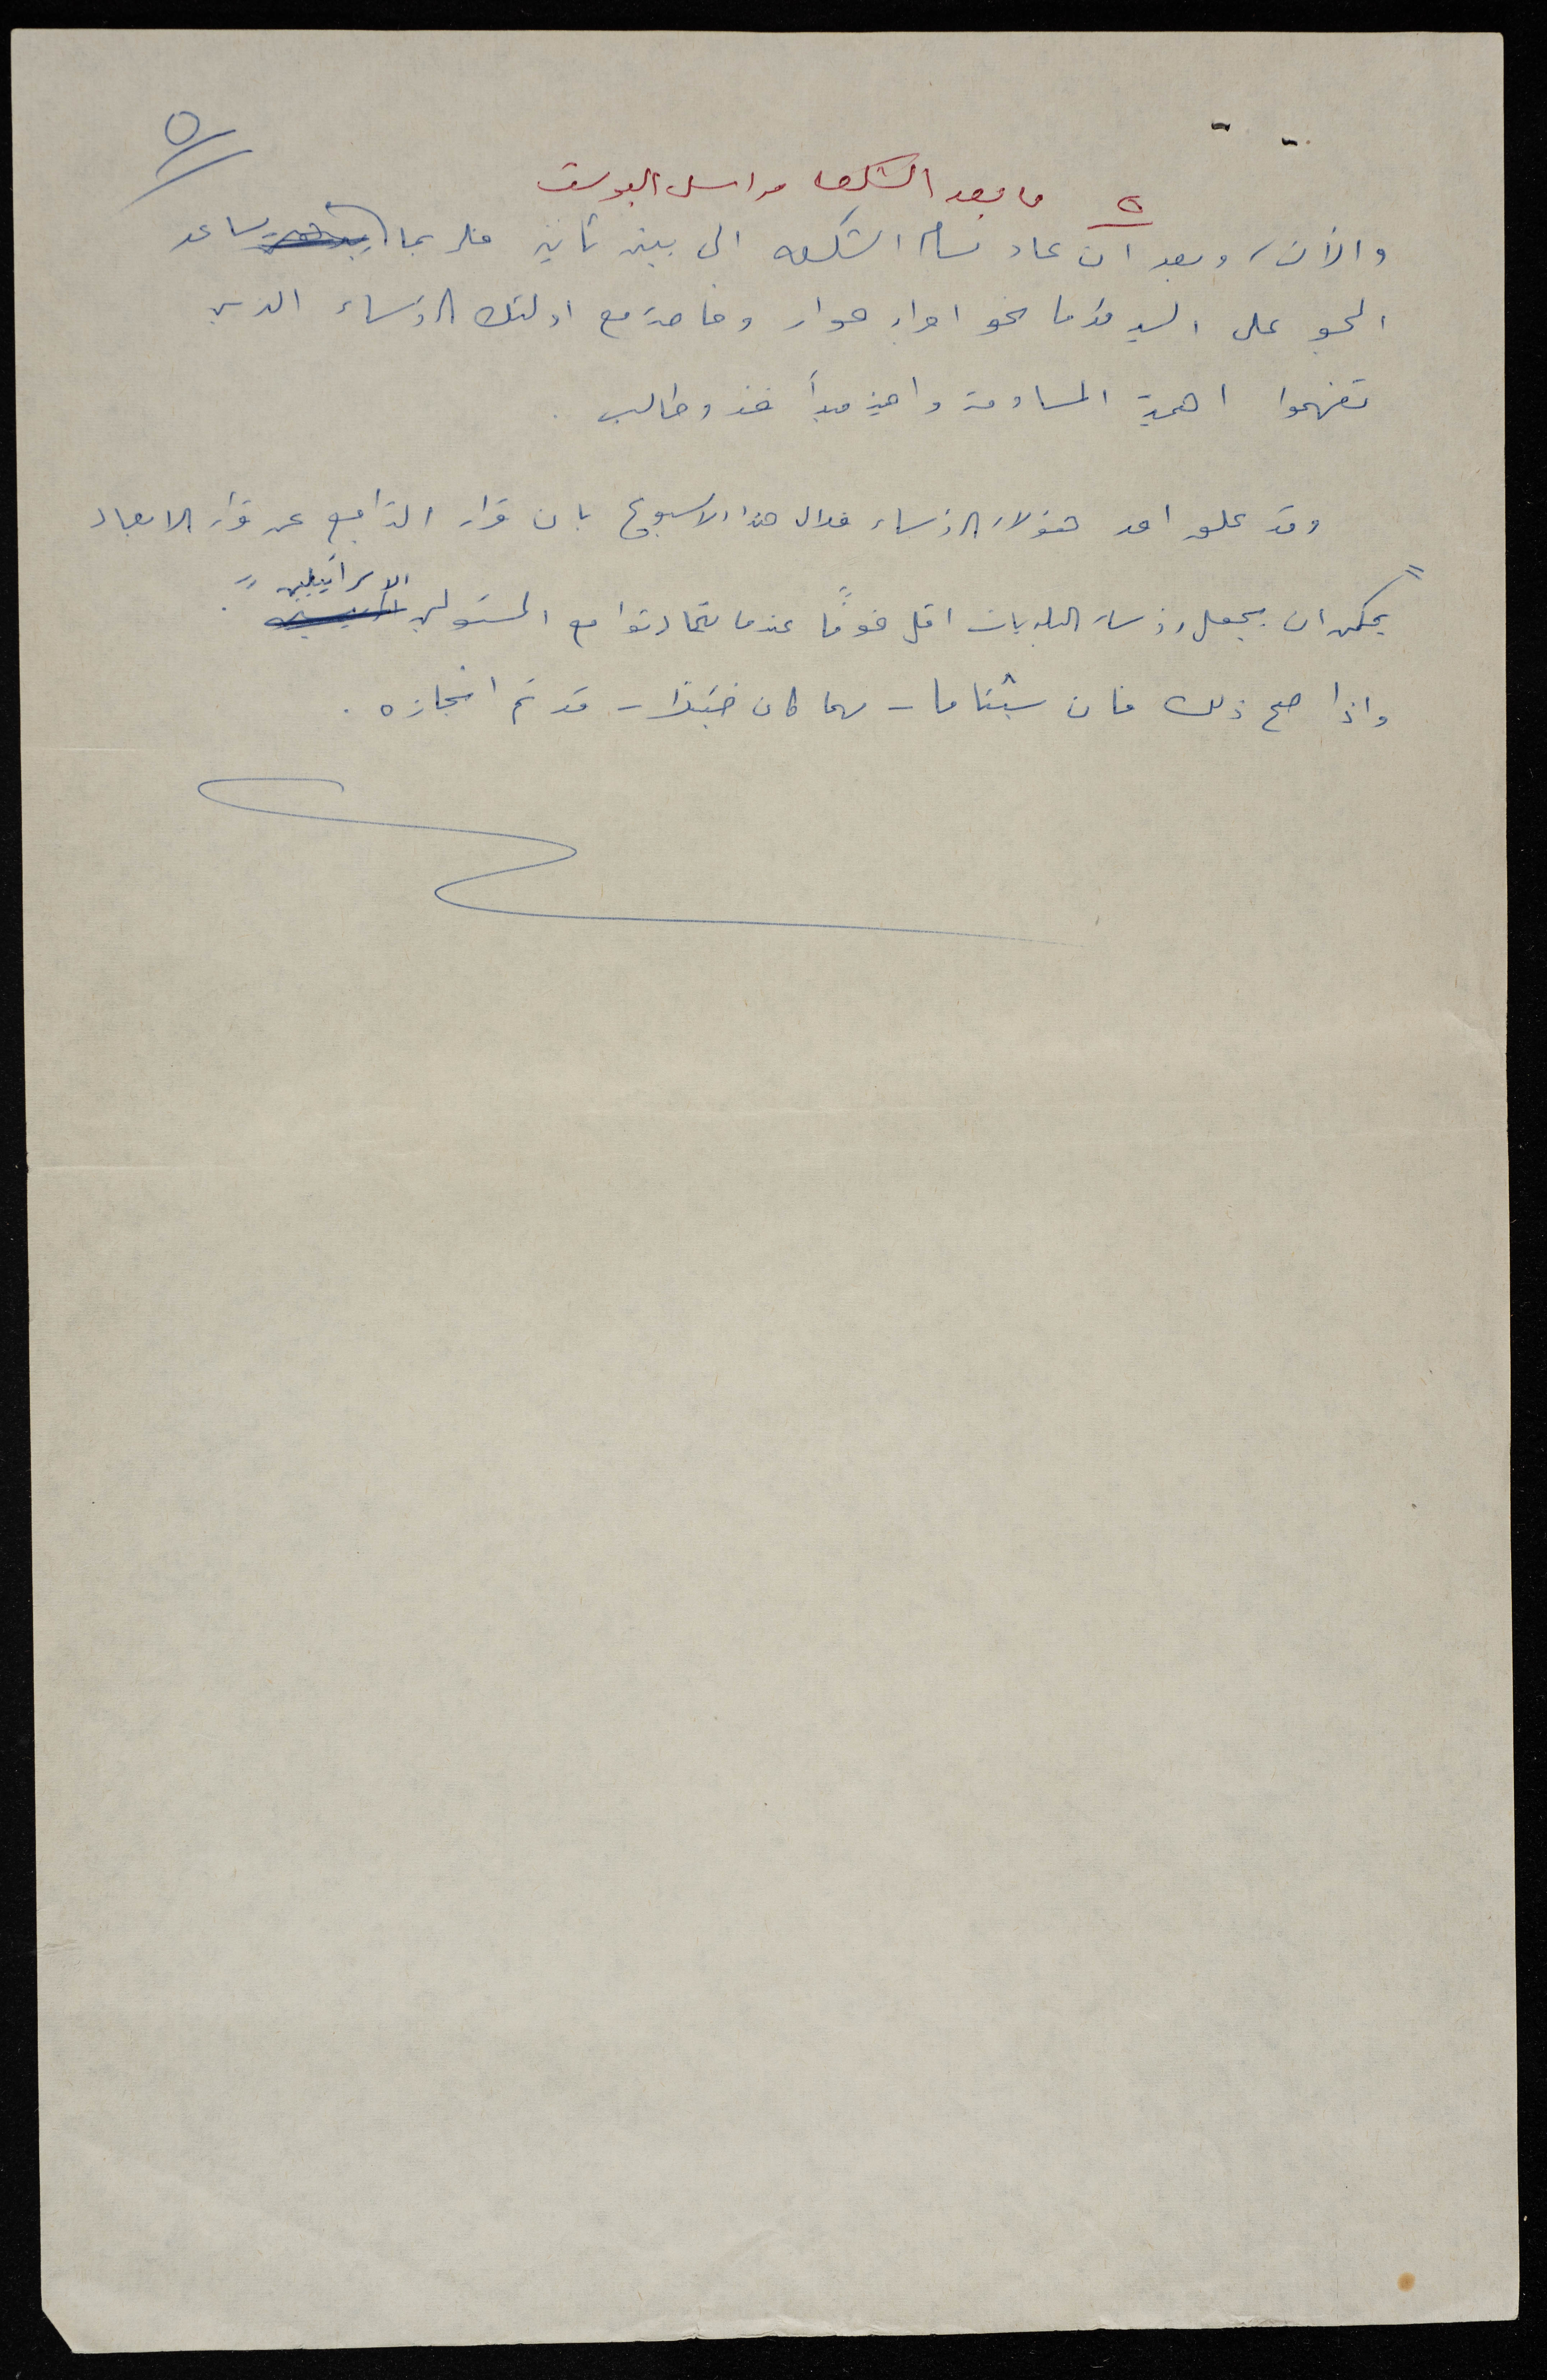 ٥
٥ ما بعد الشكعه مراسل البوست
والآن، وبعد ان عاد بسام الشكعه الى بيته ثانيه فلربما يساعد
الجو على السير قدما نحو اجراء حوار وخاصة مع اولئك الرؤساء الذين
تفهموا اهمية المساومة واهمية مبدأ خذ وطالب .
وقد علق احد هؤلاء الرؤساء خلال هذا الاسبوع بان قرار التراجع عن قرار الابعاد
" يمكن ان يجعل رؤساء البلديات اقل خوفًا عندما يتحادثوا مع المسئولين الاسرائيليين " .
واذا صح ذلك فان شيئا ما - مهما كان ضئيلا - قد تم انجازه .